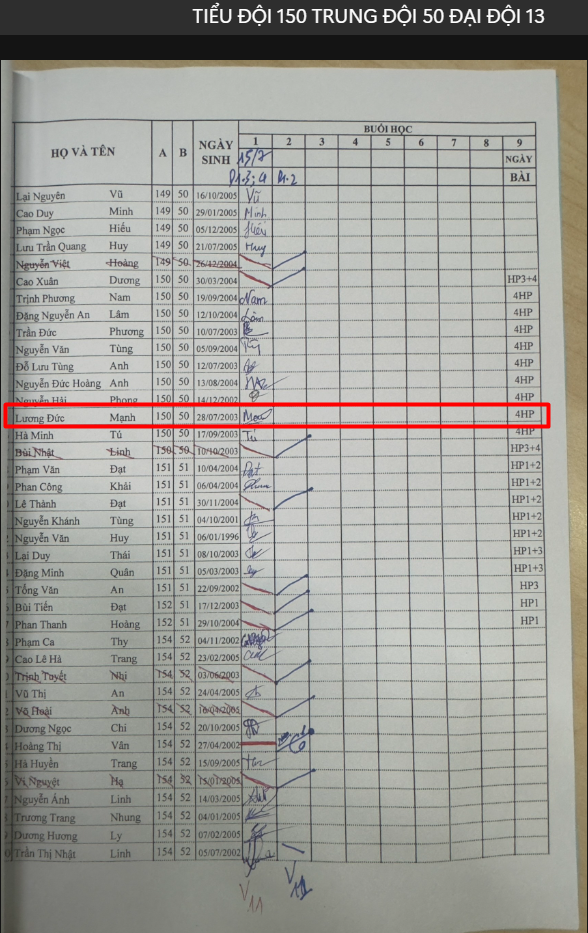 TIỂU ĐỘI 150 TRUNG ĐỘI 50 ĐẠI ĐỘI 13
HỌ VÀ TÊN A B NGÀY SINH BUỔI HỌC
1 2 3 4 5 6 7 8 9
15/7 NGÀY
P1.3;4 P1.2 BÀI
Lại Nguyên Vũ 149 50 16/10/2005 Vũ
Cao Duy Minh 149 50 29/01/2005 Minh
Phạm Ngọc Hiếu 149 50 05/12/2005 Hiếu
Lưu Trần Quang Huy 149 50 21/07/2005 Huy
Nguyễn Việt Hoàng 149 50 26/12/2004
Cao Xuân Dương 150 50 30/03/2004 HP3+4
Trịnh Phương Nam 150 50 19/09/2004 Nam 4HP
Đặng Nguyễn An Lâm 150 50 12/10/2004 Lâm 4HP
Trần Đức Phương 150 50 10/07/2003 4HP
Nguyễn Văn Tùng 150 50 05/09/2004 4HP
Đỗ Lưu Tùng Anh 150 50 12/07/2003 4HP
Nguyễn Đức Hoàng Anh 150 50 13/08/2004 4HP
Nguyễn Hải Phong 150 50 14/12/2002 4HP
Lương Đức Mạnh 150 50 28/07/2003 4HP
Hà Minh Tú 150 50 17/09/2003 Tú 4HP
Bùi Nhật Linh 150 50 10/10/2003 HP3+4
Phạm Văn Đạt 151 51 10/04/2004 Đạt HP1+2
Phan Công Khải 151 51 06/04/2004 HP1+2
Lê Thành Đạt 151 51 30/11/2004 HP1+2
Nguyễn Khánh Tùng 151 51 04/10/2001 HP1+2
Nguyễn Văn Huy 151 51 06/01/1996 HP1+2
Lại Duy Thái 151 51 08/10/2003 HP1+3
Đặng Minh Quân 151 51 05/03/2003 HP1+3
Tống Văn An 151 51 22/09/2002 HP3
Bùi Tiến Đạt 152 51 17/12/2003 HP1
Phan Thanh Hoàng 152 51 29/10/2004 HP1
Phạm Ca Thy 154 52 04/11/2002
Cao Lê Hà Trang 154 52 23/02/2005
Trịnh Tuyết Nhi 154 52 03/06/2003
Vũ Thị An 154 52 24/04/2005
Võ Hoài Anh 154 52 16/04/2005
Dương Ngọc Chi 154 52 20/10/2005
Hoàng Thị Vân 154 52 27/04/2002
Hà Huyền Trang 154 52 15/09/2005
Vi Nguyệt Hạ 154 52 15/01/2005
Nguyễn Ánh Linh 154 52 14/03/2005
Trương Trang Nhung 154 52 04/01/2005
Dương Hương Ly 154 52 07/02/2005
Trần Thị Nhật Linh 154 52 05/07/2002
V11